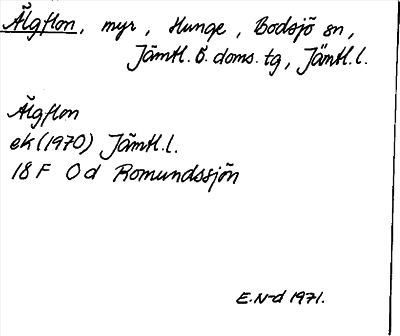 Älgflon, myr, Hunge, Bodsjö sn,
Jämtl. ö. doms. tg, Jämtl. l.
Älgflon
ek (1970) Jämtl. l.
18 F 0d Romundssjön
E. N-d 1971.